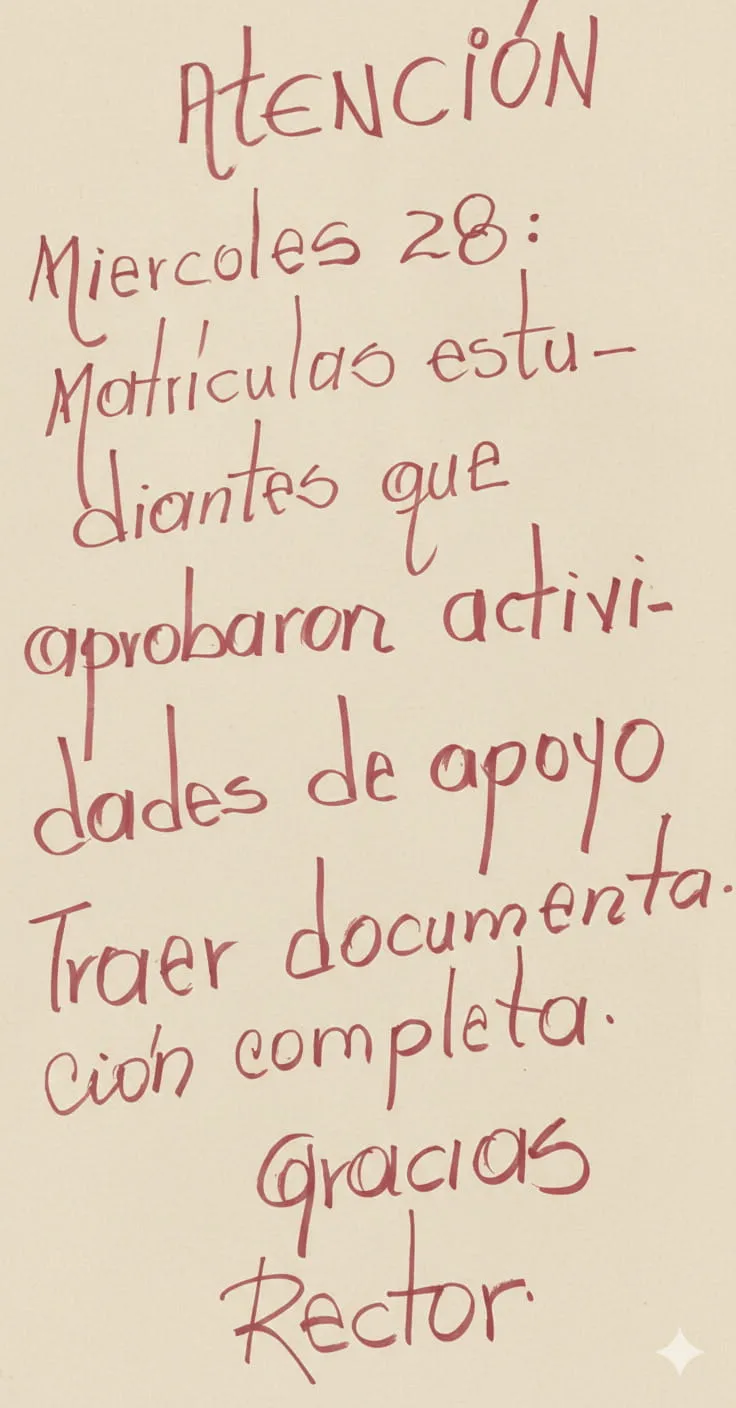 AtENCIÓN
Miercoles 28:
Matrículas estu-
diantes que
aprobaron activi-
dades de apoyo
Traer documenta.
ción completa.
Gracias
Rector.